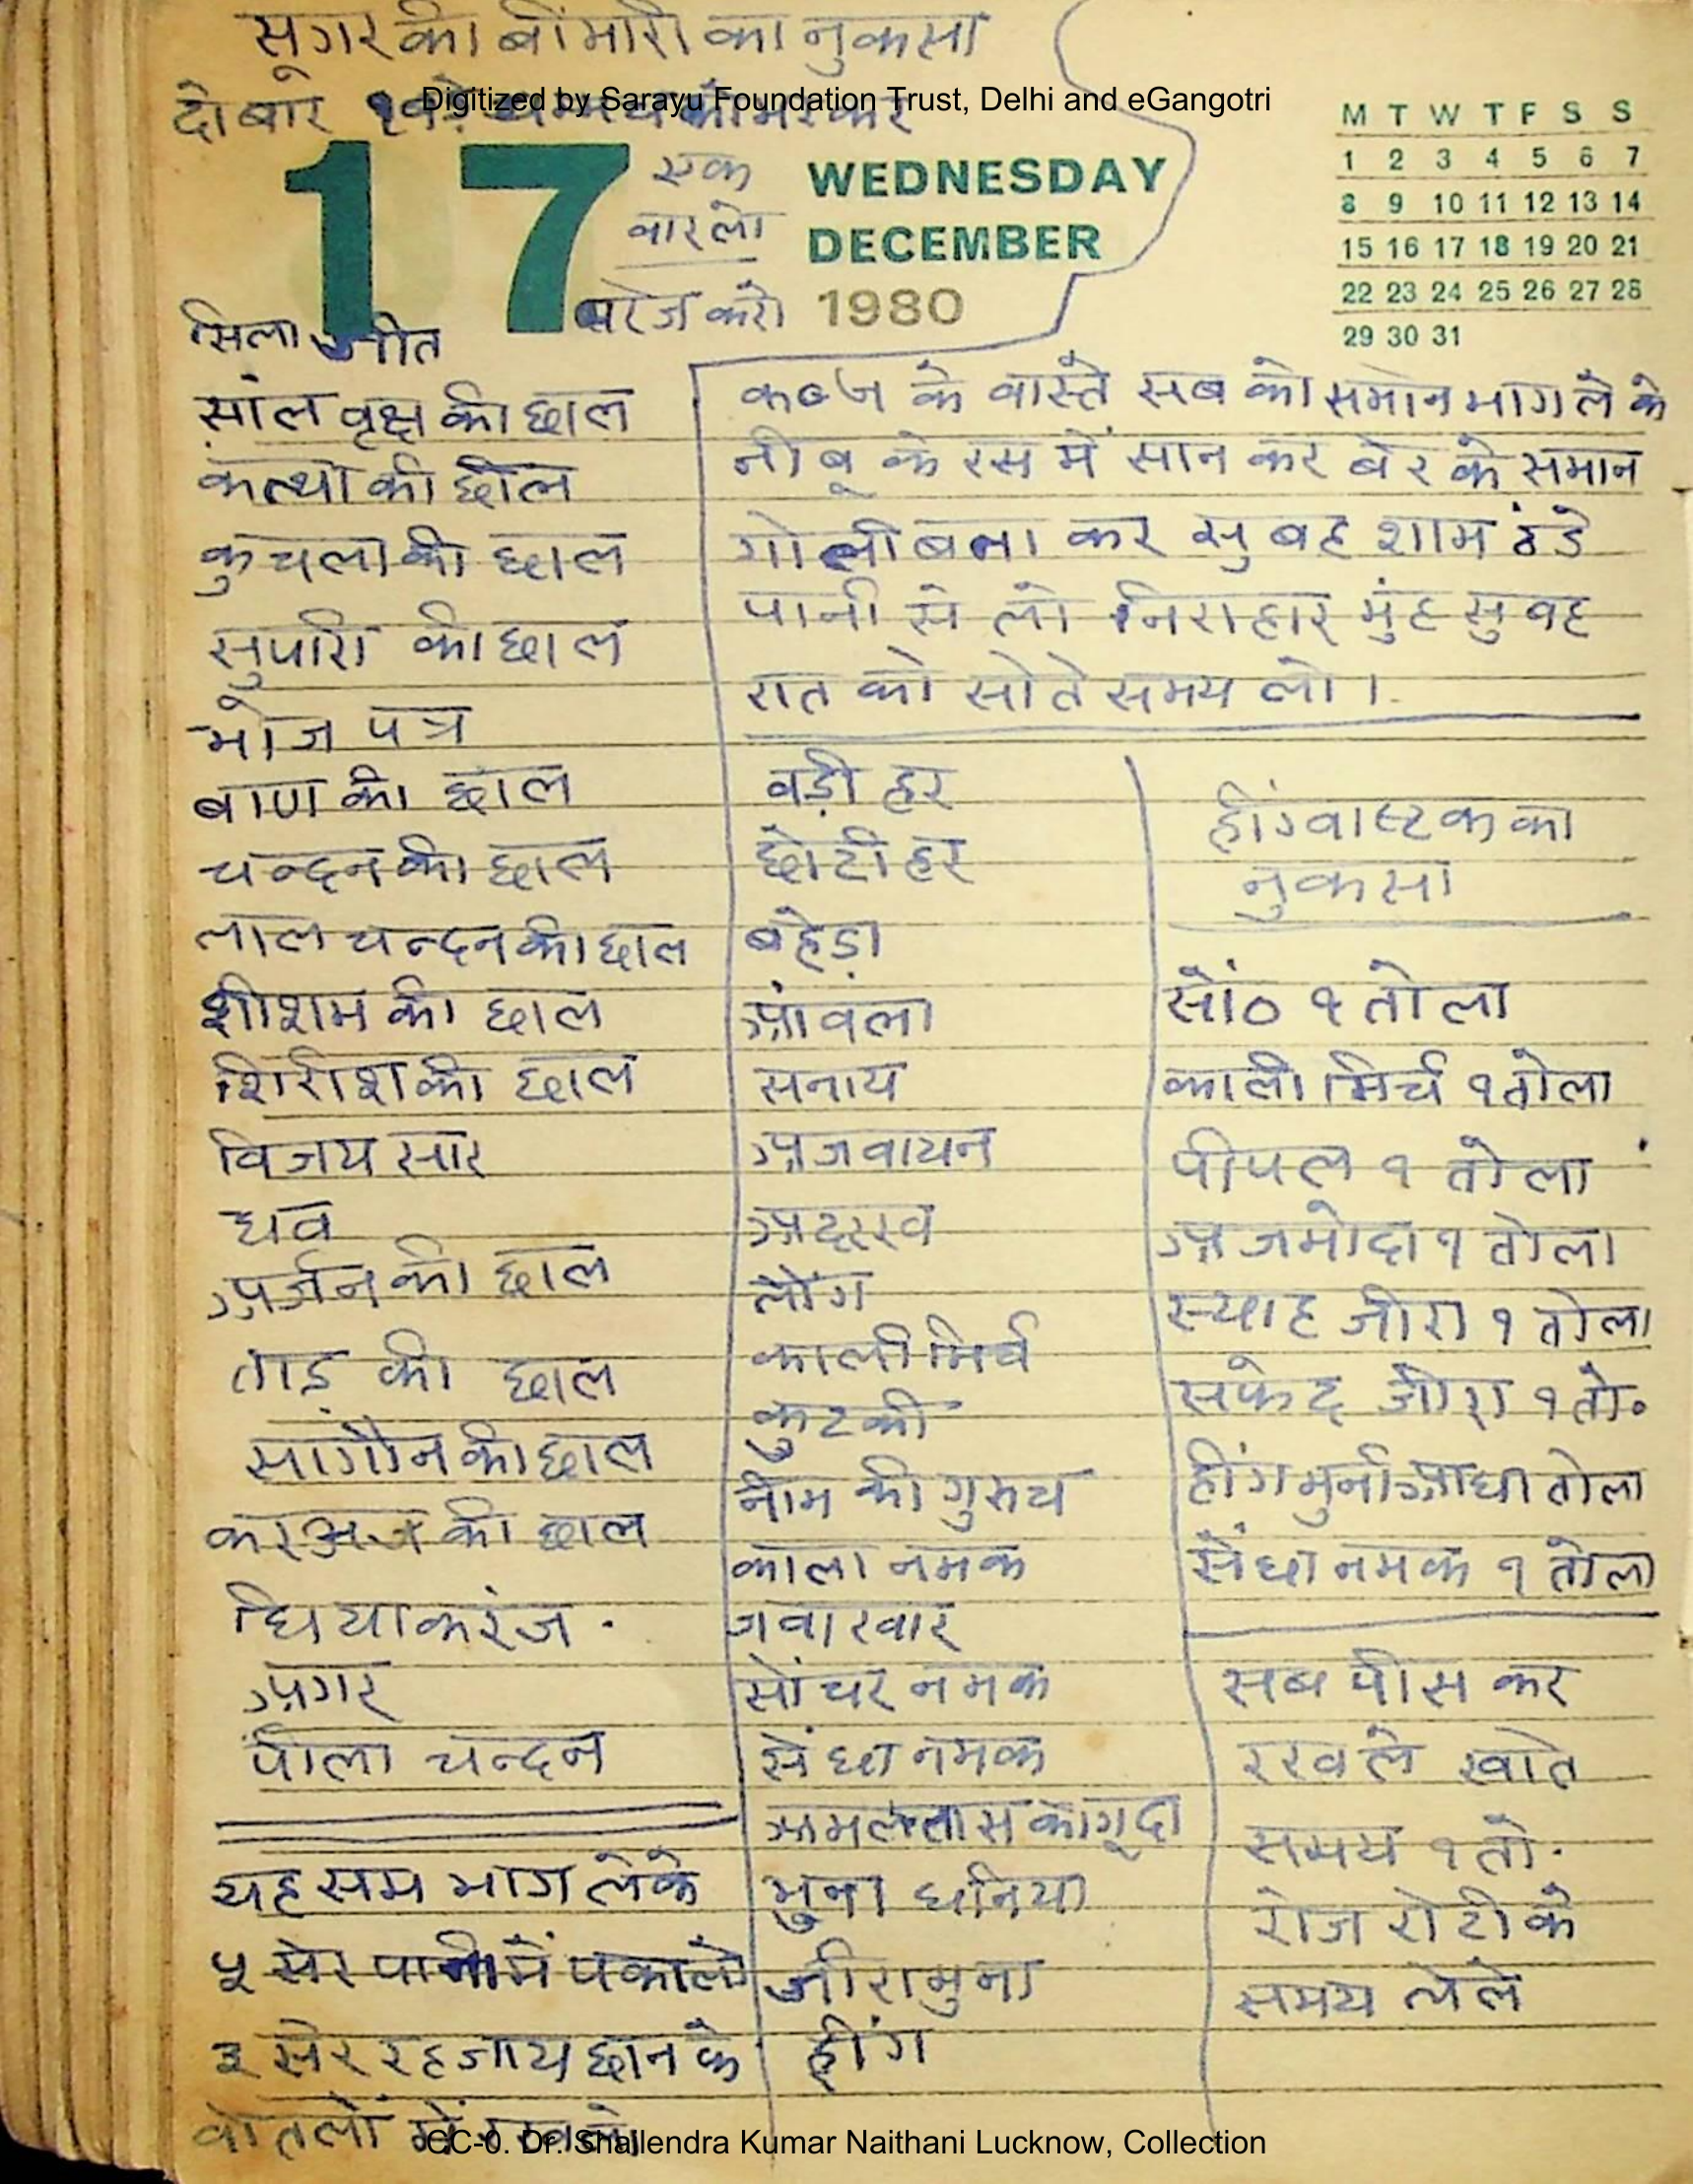 सूगर की बीमारी का नुकसा
दो बार
Digitized by Sarayu Foundation Trust, Delhi and eGangotri
17
एक
वार लो
रोज करो
WEDNESDAY
DECEMBER
1980
M T W T F S S
1 2 3 4 5 6 7
8 9 10 11 12 13 14
15 16 17 18 19 20 21
22 23 24 25 26 27 28
29 30 31
सिलाजीत
साल वृक्ष की छाल
कत्था की छाल
कुचला की छाल
सुपारी की छाल
भोज पत्र
बाण की छाल
चन्दन की छाल
लाल चन्दन की छाल
शीशम की छाल
शिरीश की छाल
विजय सार
धव
अर्जन की छाल
ताड़ की छाल
सागौन की छाल
करञ्ज की छाल
घिया करंज
अगर
पीला चन्दन
यह सम भाग लेके
५ सेर पानी में पकालो
३ सेर रह जाय छान के
वोतलों में रखलो
कब्ज के वास्ते सब को समान भाग ले के
नीबू के रस में सान कर बेर के समान
गोली बना कर सुबह शाम ठंडे
पानी से लो निराहार मुंह सुवह
रात को सोते समय लो ।
वड़ी हर
छोटी हर
बहेड़ा
आंवला
सनाय
अजवायन
अदरख
लौंग
काली मिर्च
कुटकी
नीम की गुरुच
काला नमक
जवाखार
सोंचर नमक
सेंधा नमक
अमलतास का गूदा
भुना धनिया
जीरा भुना
हींग
हींगवास्टक का
नुकसा
सोंठ १ तोला
काली मिर्च १ तोला
पीपल १ तोला
अजमोदा १ तोला
स्याह जीरा १ तोला
सफेद जीरा १ तो॰
हींग भुनी आधा तोला
सेंधा नमक १ तोला
सब पीस कर
रखले खाते
समय १ तो.
रोज रोटी के
समय लेले
CC-0. Dr. Shailendra Kumar Naithani Lucknow, Collection